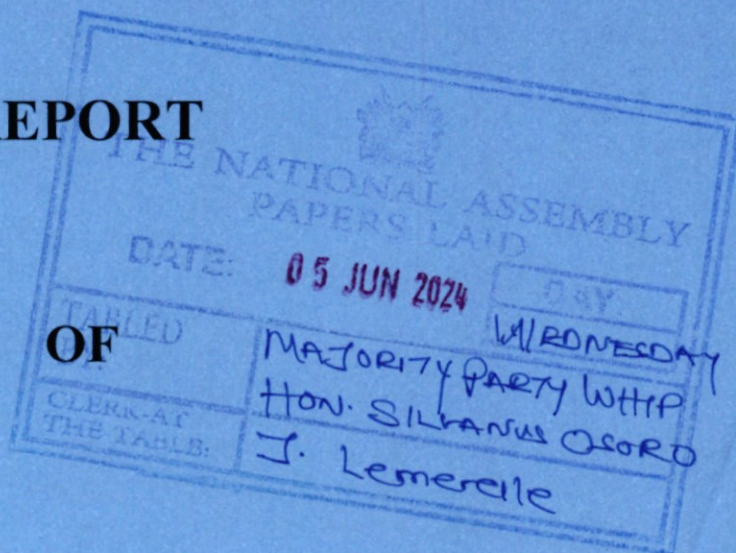 REPORT
THE NATIONAL ASSEMBLY
PAPERS LAID
DATE: 05 JUN 2024 DAY.
WIRDNESDAY
TABLED
OF
MAJORITY PARTY WHIP
HON. SILVANUS OSORO
CLERK-AT
THE TABLE:
J. Lemerelle